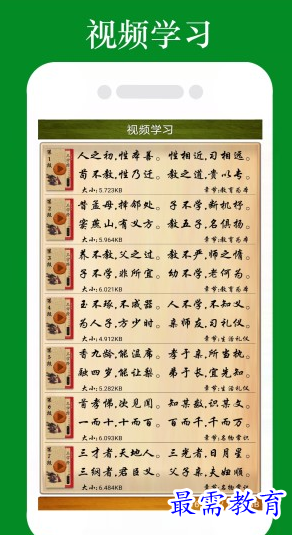 视频学习
视频学习
第1段
人之初,性本善。 性相近,习相远。
苟不教,性乃迁。 教之道,贵以专。
大小:5.723KB 章节:教育为本
第2段
昔孟母,择邻处。 子不学,断机杼。
窦燕山,有义方。 教五子,名俱扬。
大小:5.964KB 章节:教育为本
第3段
养不教,父之过。 教不严,师之惰。
子不学,非所宜。 幼不学,老何为。
大小:6.021KB 章节:教育为本
第4段
玉不琢,不成器。 人不学,不知义。
为人子,方少时。 亲师友,习礼仪。
大小:4.912KB 章节:生活礼仪
第5段
香九龄,能温席。 孝于亲,所当执。
融四岁,能让梨。 弟于长,宜先知。
大小:5.282KB 章节:生活礼仪
第6段
首孝悌,次见闻。 知某数,识某文。
一而十,十而百。 百而千,千而万。
大小:6.093KB 章节:名物常识
第7段
三才者,天地人。 三光者,日月星。
三纲者,君臣义。 父子亲,夫妇顺。
大小:6.484KB 章节:名物常识
最需教育